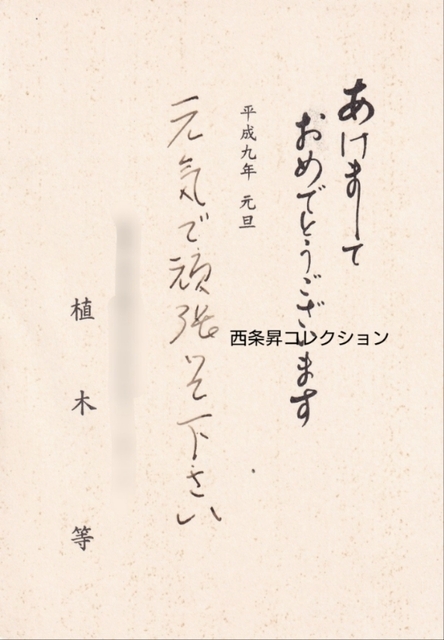 あけまして
おめでとうございます
平成九年 元旦
元気で頑張って下さい
植木等
西条昇コレクション